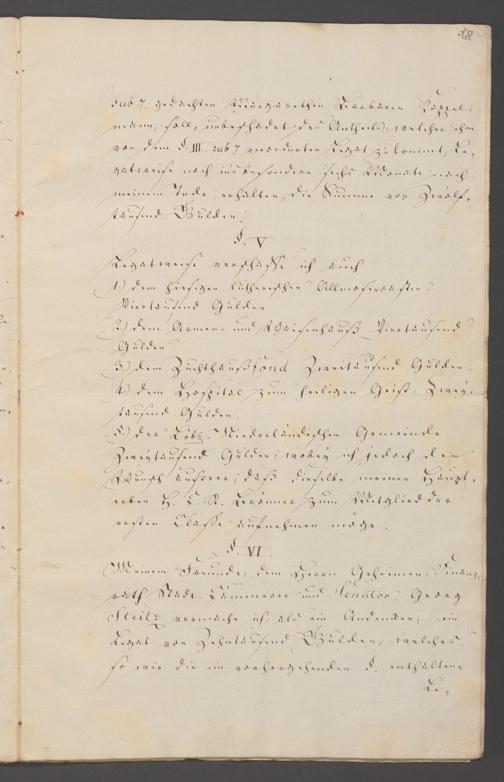 sub 7. gedachten Margarethen Barbaren Koppel-
mann, soll, unbeschadet des Antheils, welcher ihm
von dem §. III sub 7 verordneten Legat zukommt, Le-
gatweise noch insbesondere sechs Monate nach
meinem Tode erhalten, die Summe von Zwölf-
tausend Gulden.
§. V.
Legatweise verschaffe ich auch
1.) dem hiesigen lutherischen Allmosenkasten,
Viertausend Gulden
2.) dem Armen- und Waisenhauß Viertausend
Gulden
3.) dem Zuchthaußfond Zweitausend Gulden.
4.) dem Hospital zum heiligen Geist, Zwey-
tausend Gulden.
5.) der Löbl. Niederländischen Gemeinde
Zweytausend Gulden, wobey ich jedoch den
Wunsch äußere, daß dieselbe meinen Haupt-
erben H. C. R. zum Mitglied der
ersten Classe aufnehmen möge.
§. VI.
Meinem Freunde, dem Herrn Geheimen Finanz-
rath Stadt Kämmerer und Senator, Georg
Steitz vermache ich als ein Andenken, ein
Legat von Zehntausend Gulden, welches,
so wie die im vorhergehenden §. enthaltene
Le-